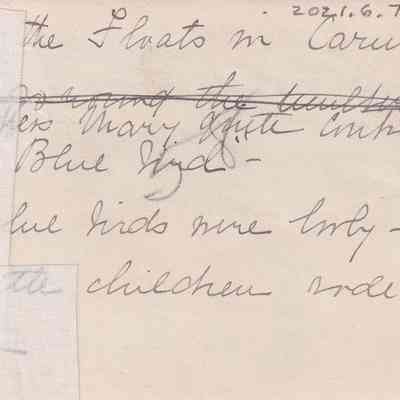 2021.6.7
the Floats in Carn
around the
ers Mary Quite Cont
Blue Bird -
lue birds were lovly -
tte children rode